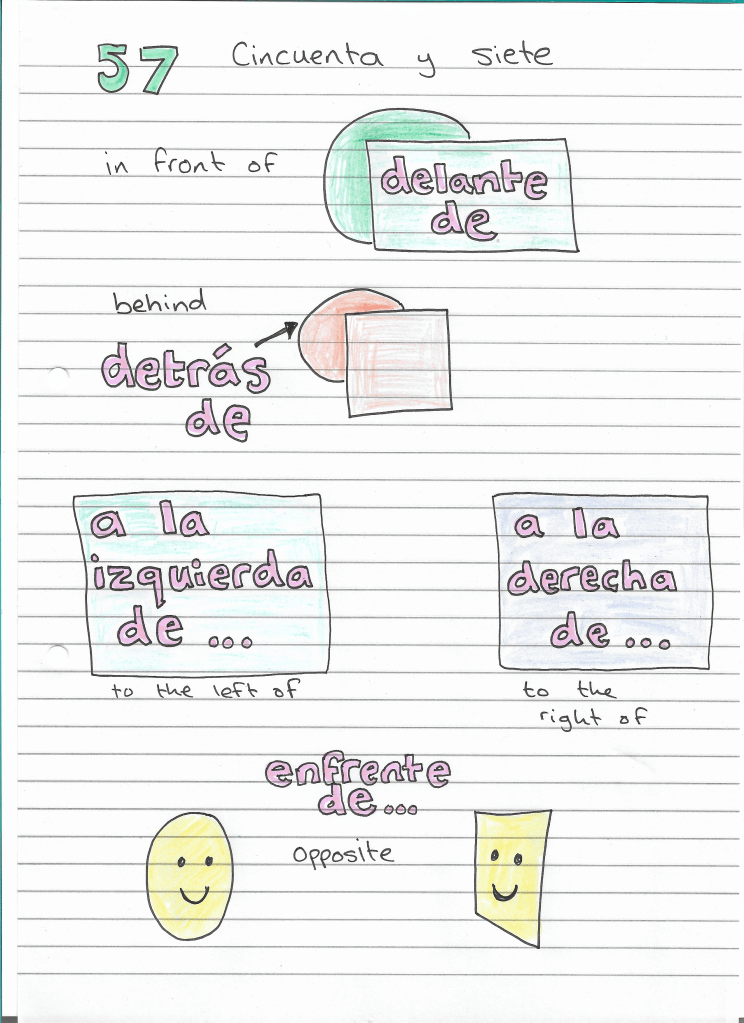 57 Cincuenta y siete
in front of
delante
de
behind
detrás
de
a la
izquierda
de ...
to the left of
a la
derecha
de ...
to the
right of
enfrente
de ...
opposite